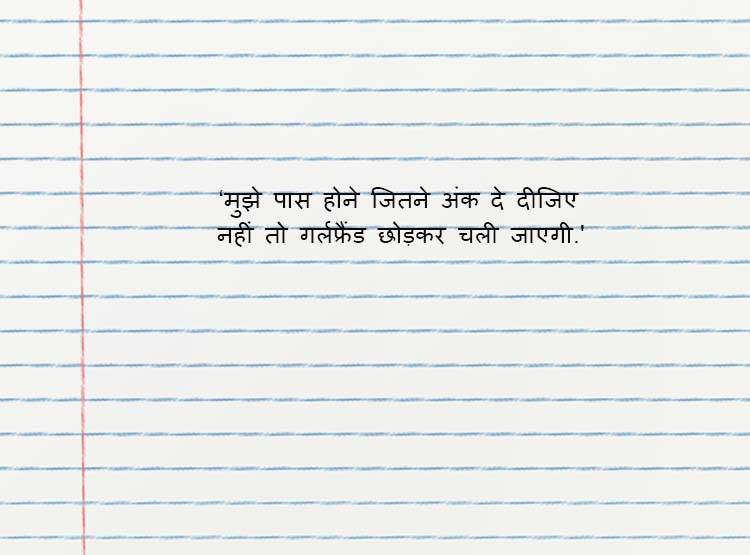 ‘मुझे पास होने जितने अंक दे दीजिए
नहीं तो गर्लफ्रैंड छोड़कर चली जाएगी.'